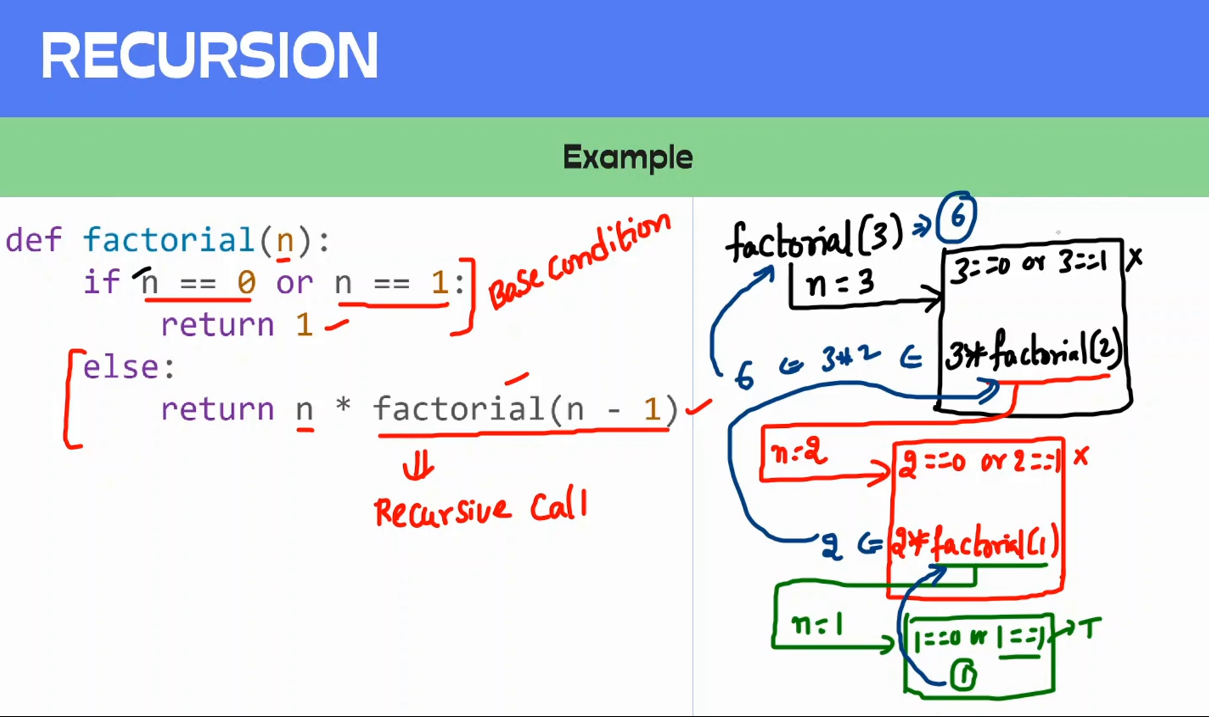 RECURSION
Example
def factorial(n):
if n == 0 or n == 1:
return 1
else:
return n * factorial(n - 1)
Base condition
Recursive Call
factorial(3) ⇒ 6
n = 3
3==0 or 3==1 x
3*factorial(2)
6 ⇐ 3*2 ⇐
n=2
2==0 or 2==1 x
2 ⇐ 2*factorial(1)
n=1
1==0 or 1==1 → T
1